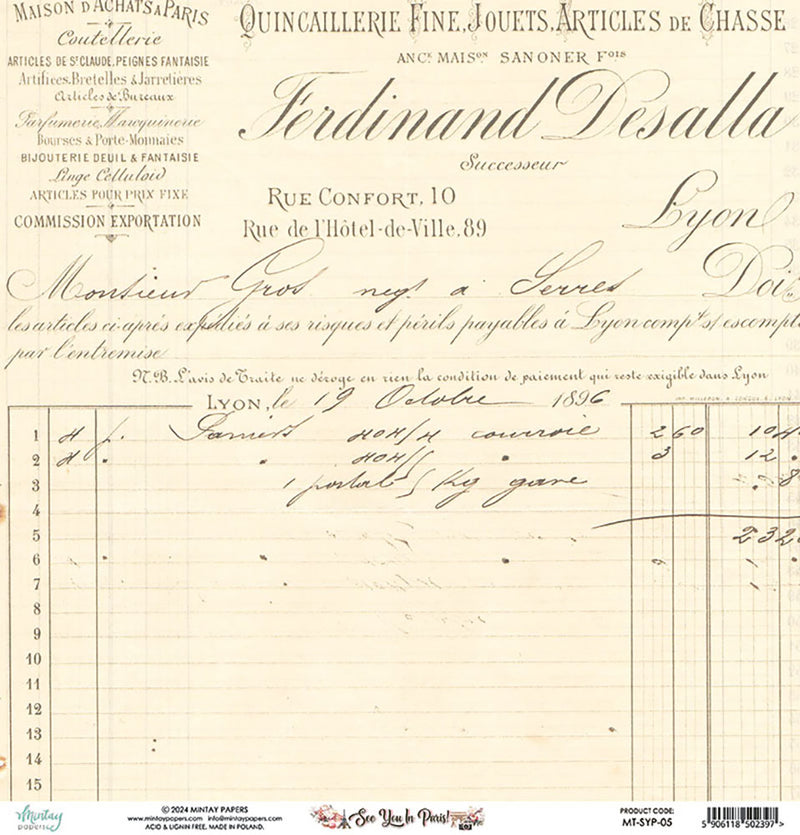 MAISON D'ACHATS A PARIS
Coutellerie
ARTICLES DE ST CLAUDE, PEIGNES FANTAISIE
Artifices, Bretelles & Jarretières
Articles de Bureaux
Parfumerie, Maroquinerie
Bourses & Porte-Monnaies
BIJOUTERIE DEUIL & FANTAISIE
Linge Celluloid
ARTICLES POUR PRIX FIXE
COMMISSION EXPORTATION
QUINCAILLERIE FINE, JOUETS, ARTICLES DE CHASSE
ANCE MAISON SANONER FOIS
Ferdinand Desalla
Successeur
RUE CONFORT, 10
Rue de l'Hôtel-de-Ville, 89
Lyon
Monsieur Gros negt à Serres Doit
les articles ci-après expédiés à ses risques et périls payables à Lyon compt s/ escompte
par l'entremise
N.B. L'avis de Traite ne déroge en rien la condition de paiement qui reste exigible dans Lyon
LYON, le 19 Octobre 1896
1 4 p. courroie 2 60 104
2 4 3 12
3 1 postal Kg gare
4
5 232
6
7
8
9
10
11
12
13
14
15
Mintay
papers
© 2024 MINTAY PAPERS
www.mintaypapers.com info@mintaypapers.com
ACID & LIGNIN FREE. MADE IN POLAND.
See You In Paris!
PRODUCT CODE:
MT-SYP-05
5 906118 502397 >